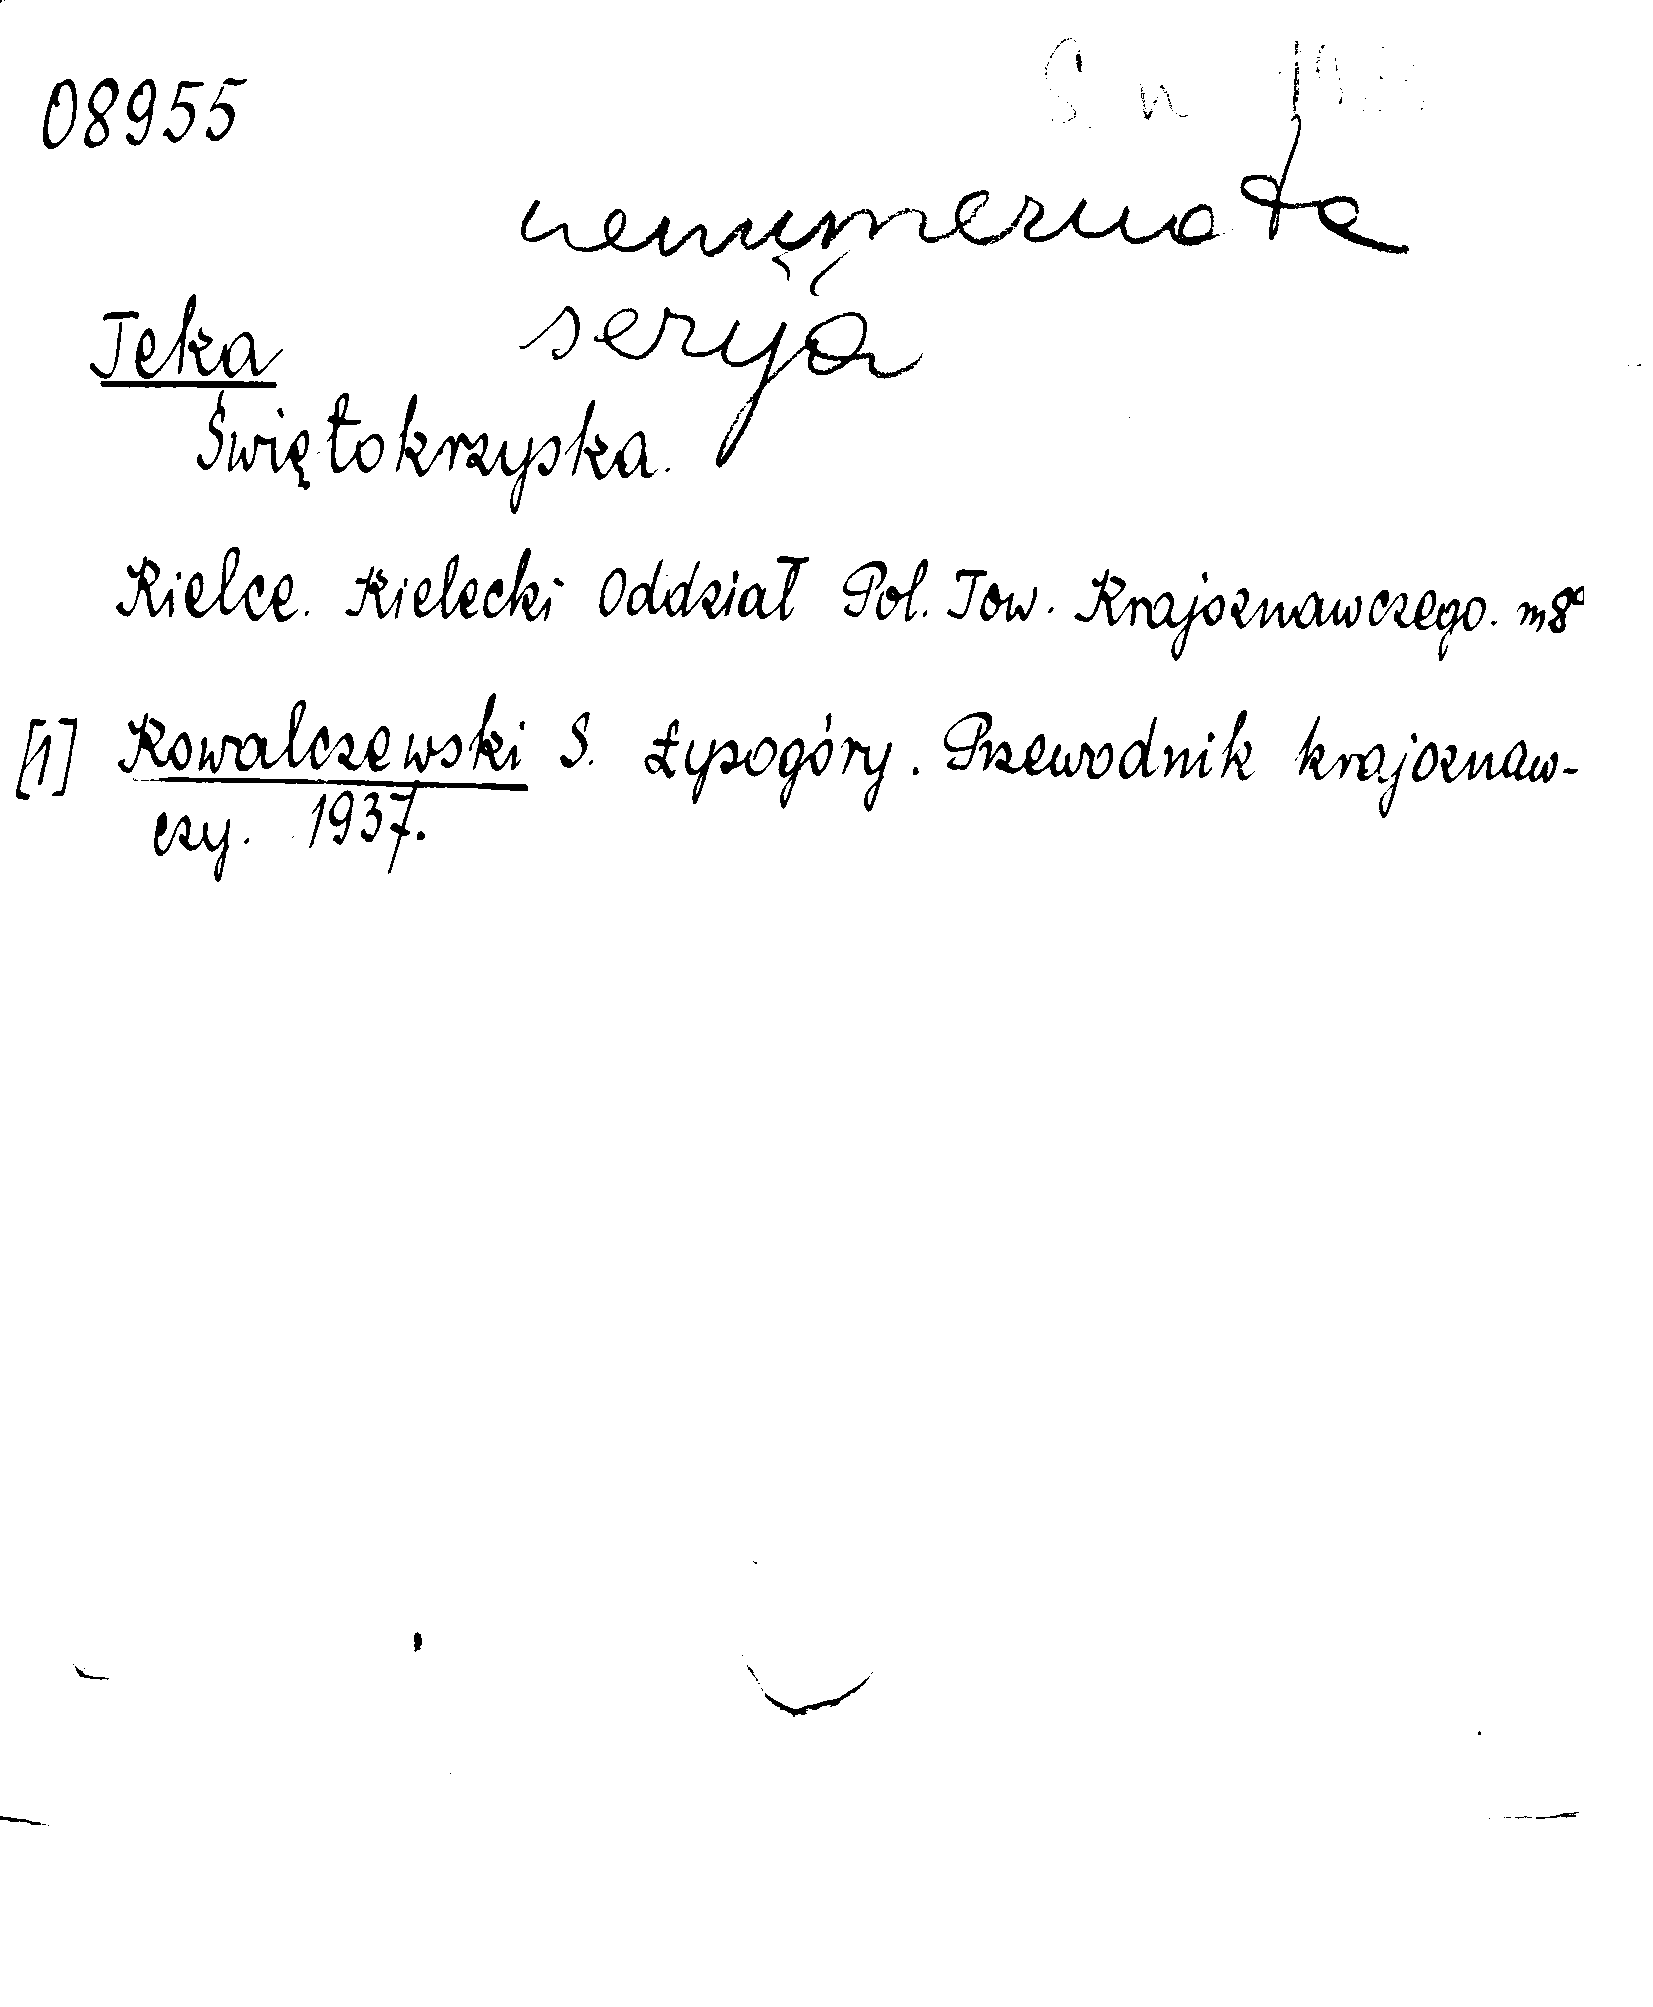 08955
S. n
nenumerowata
serija
Teka
Świętokrzyska.
Kielce. Kielecki Oddział Pol. Tow. Krajoznawczego. m8°
[1] Kowalczewski S. Łysogóry. Przewodnik krajoznaw-
czy. 1937.